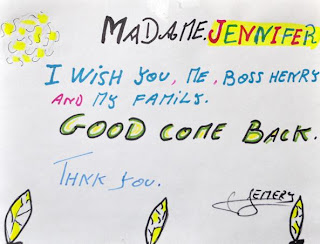 MADAME. JENNIFER
I WISH YOU, ME, BOSS HENRY
AND MY FAMILY.
GOOD COME BACK.
THNK YOU.
SEMERY